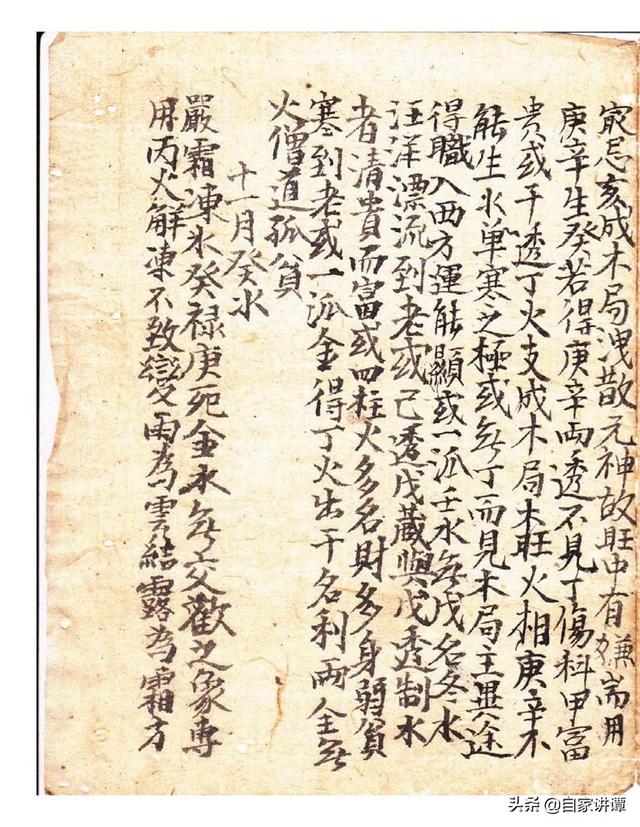 㝡忌亥成木局洩散元神故旺中有嫌耑用
庚辛生癸若得庚辛両透不見丁傷科甲富
贵或干透丁火支成木局木旺火相庚辛不
能生水单寒之極或無丁而見木局主異途
得職入西方運能顯或一派壬水無戊名冬水
汪洋漂流到老或己透戊藏與戊透制水
者清貴而富或四柱火多名財多身弱貧
寒到老或一派金得丁火出干名利両全無
火僧道孤貧
十一月癸水
嚴霜凍水癸禄庚死金水無交歡之象專
用丙火解凍不致變雨為雲結露為霜方
头条 @自家讲谭